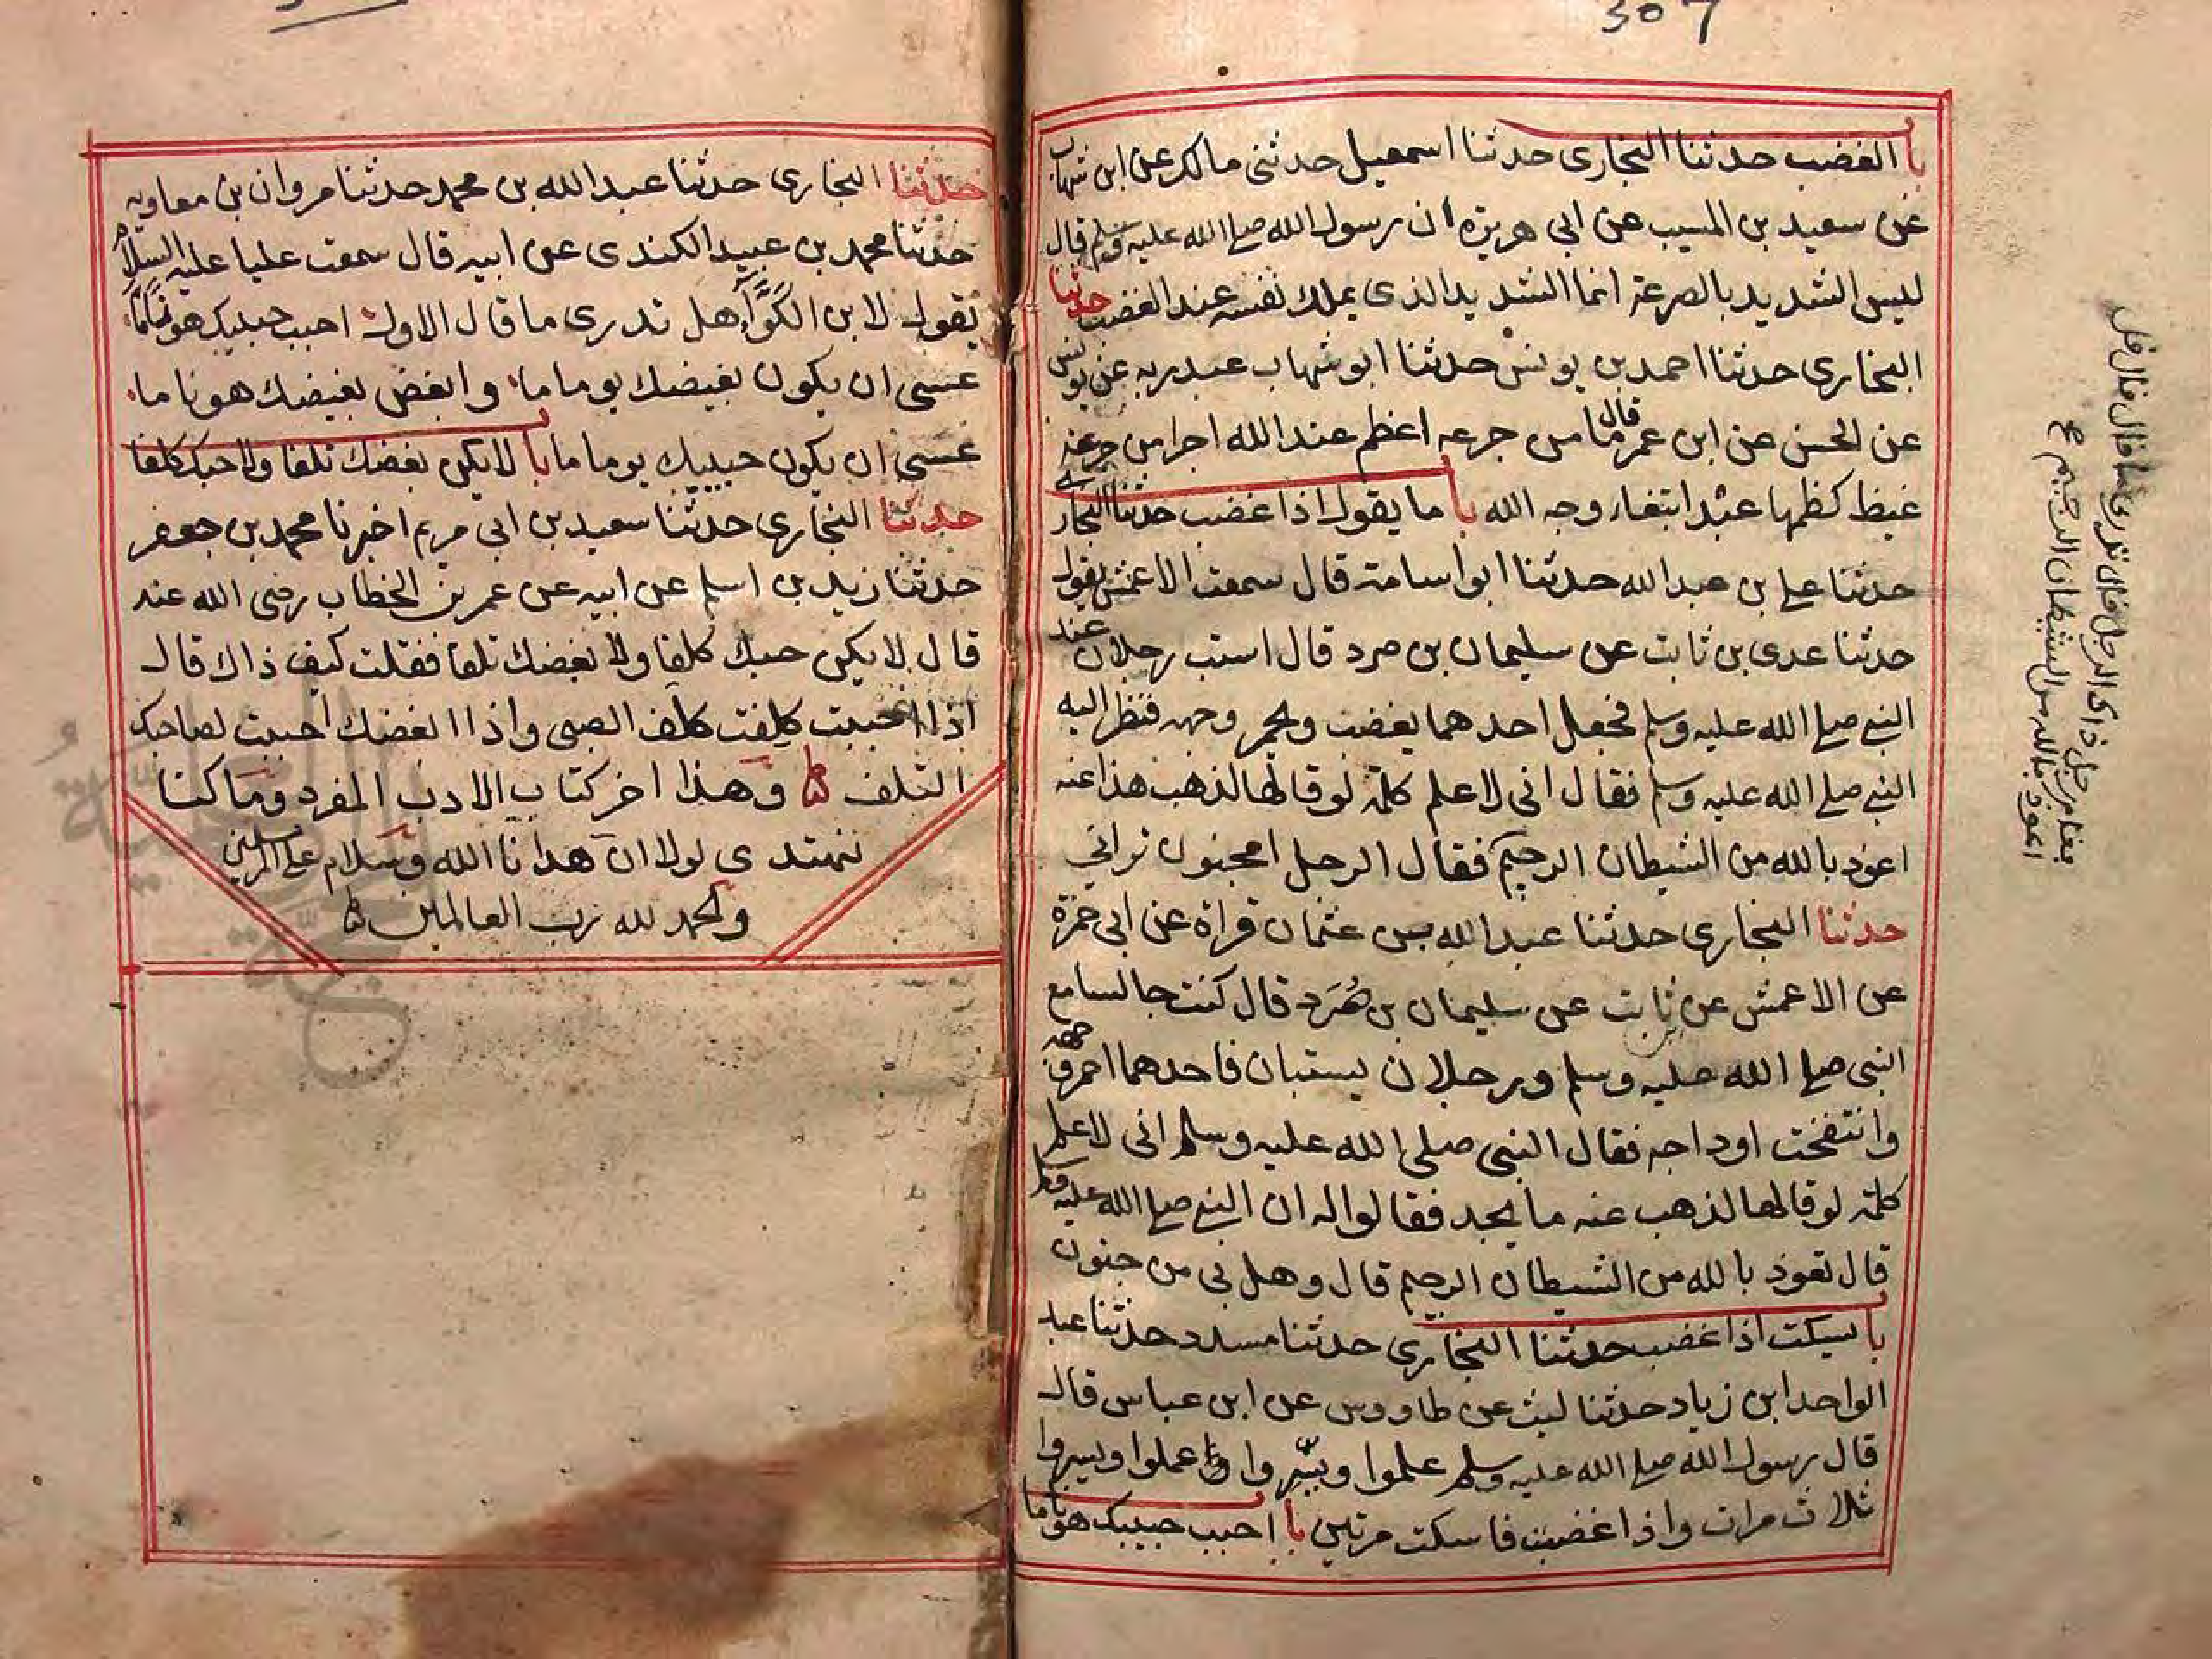 307
با الغضب حدثنا البخاري حدثنا اسمعيل حدثني مالك عن ابن شهاب
عن سعيد بن المسيب عن ابي هريرة ان رسول الله صلي الله عليه وسلم قال
ليس الشديد بالصرعة انما الشديد الذي يملك نفسه عند الغضب حدثنا
البخاري حدثنا احمد بن يونس حدثنا ابو شهاب عبد ربه عن يونس
عن الحسن عن ابن عمر قال ما من جرعه اعظم عند الله اجرا من جرعة
غيظ كظمها عبد ابتغاء وجه الله با ما يقول اذا غضب حدثنا البخاري
حدثنا علي بن عبد الله حدثنا ابو اسامة قال سمعت الاعمش يقول
حدثنا عدي بن ثابت عن سليمان بن صرد قال استب رجلان عند
النبي صلي الله عليه وسلم فجعل احدهما يغضب ويحمر وجهه فنظر اليه
النبي صلي الله عليه وسلم فقال اني لاعلم كلمة لو قالها لذهب هذا عنه
اعوذ بالله من الشيطان الرجيم فقال الرجل امجنون تراني
حدثنا البخاري حدثنا عبد الله بن عثمان قراة عن ابي حمزة
عن الاعمش عن ثابت عن سليمان بن صُرَد قال كنت جالسا مع
النبي صلي الله عليه وسلم ورجلان يستبان فاحدهما احمر وجهه
وانتفخت اوداجه فقال النبي صلى الله عليه وسلم اني لاعلم
كلمة لو قالها لذهب عنه ما يجد فقالوا له ان النبي صلي الله عليه وسلم
قال تعوذ بالله من الشيطان الرجيم قال وهل بي من جنون
با يسكت اذا غضب حدثنا البخاري حدثنا مسدد حدثنا عبد
الواحد ابن زياد حدثنا ليث عن طاووس عن ابن عباس قال
قال رسول الله صلي الله عليه وسلم علموا ويسّروا علموا ويسروا
ثلاث مرات واذا غضبت فاسكت مرتين با احبب حبيبك هونا ما
فقام رجل ذاك الرجل قال تدري ما قال قال قل
اعوذ بالله من الشيطان الرجيم
حدثنا البخاري حدثنا عبد الله بن محمد حدثنا مروان بن معاويه
حدثنا محمد بن عبيد الكندي عن ابيه قال سمعت عليا عليه السلام
يقول لابن الكَوَّاءِ هل تدري ما قال الاول احبب حبيبك هونًا مّا
عسى ان يكون بغيضك يوما ما وابغض بغيضك هونا ما
عسى ان يكون حبيبك يوما ما با لا يكن بغضك تلفا ولا حبك كلفا
حدثنا البخاري حدثنا سعيد بن ابي مريم اخبرنا محمد بن جعفر
حدثنا زيد بن اسلم عن ابيه عن عمر بن الخطاب رضي الله عنه
قال لا يكن حبك كلفا ولا بغضك تلفا فقلت كيف ذاك قال
اذا احببت كلِفت كلَف الصبي واذا ابغضك احببت لصاحبك
التلف وهذا اخر كتاب الادب المفرد وما كنا
نهتدي لولا ان هدانا الله وسلام على المرسلين
والحمد لله رب العالمين